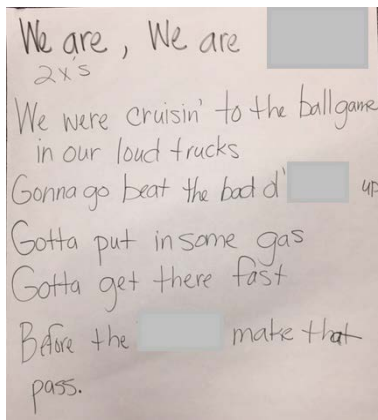 We are, We are
2x's
We were cruisin' to the ballgame
in our loud trucks
Gonna go beat the bad d' up
Gotta put in some gas
Gotta get there fast
Before the make that
pass.